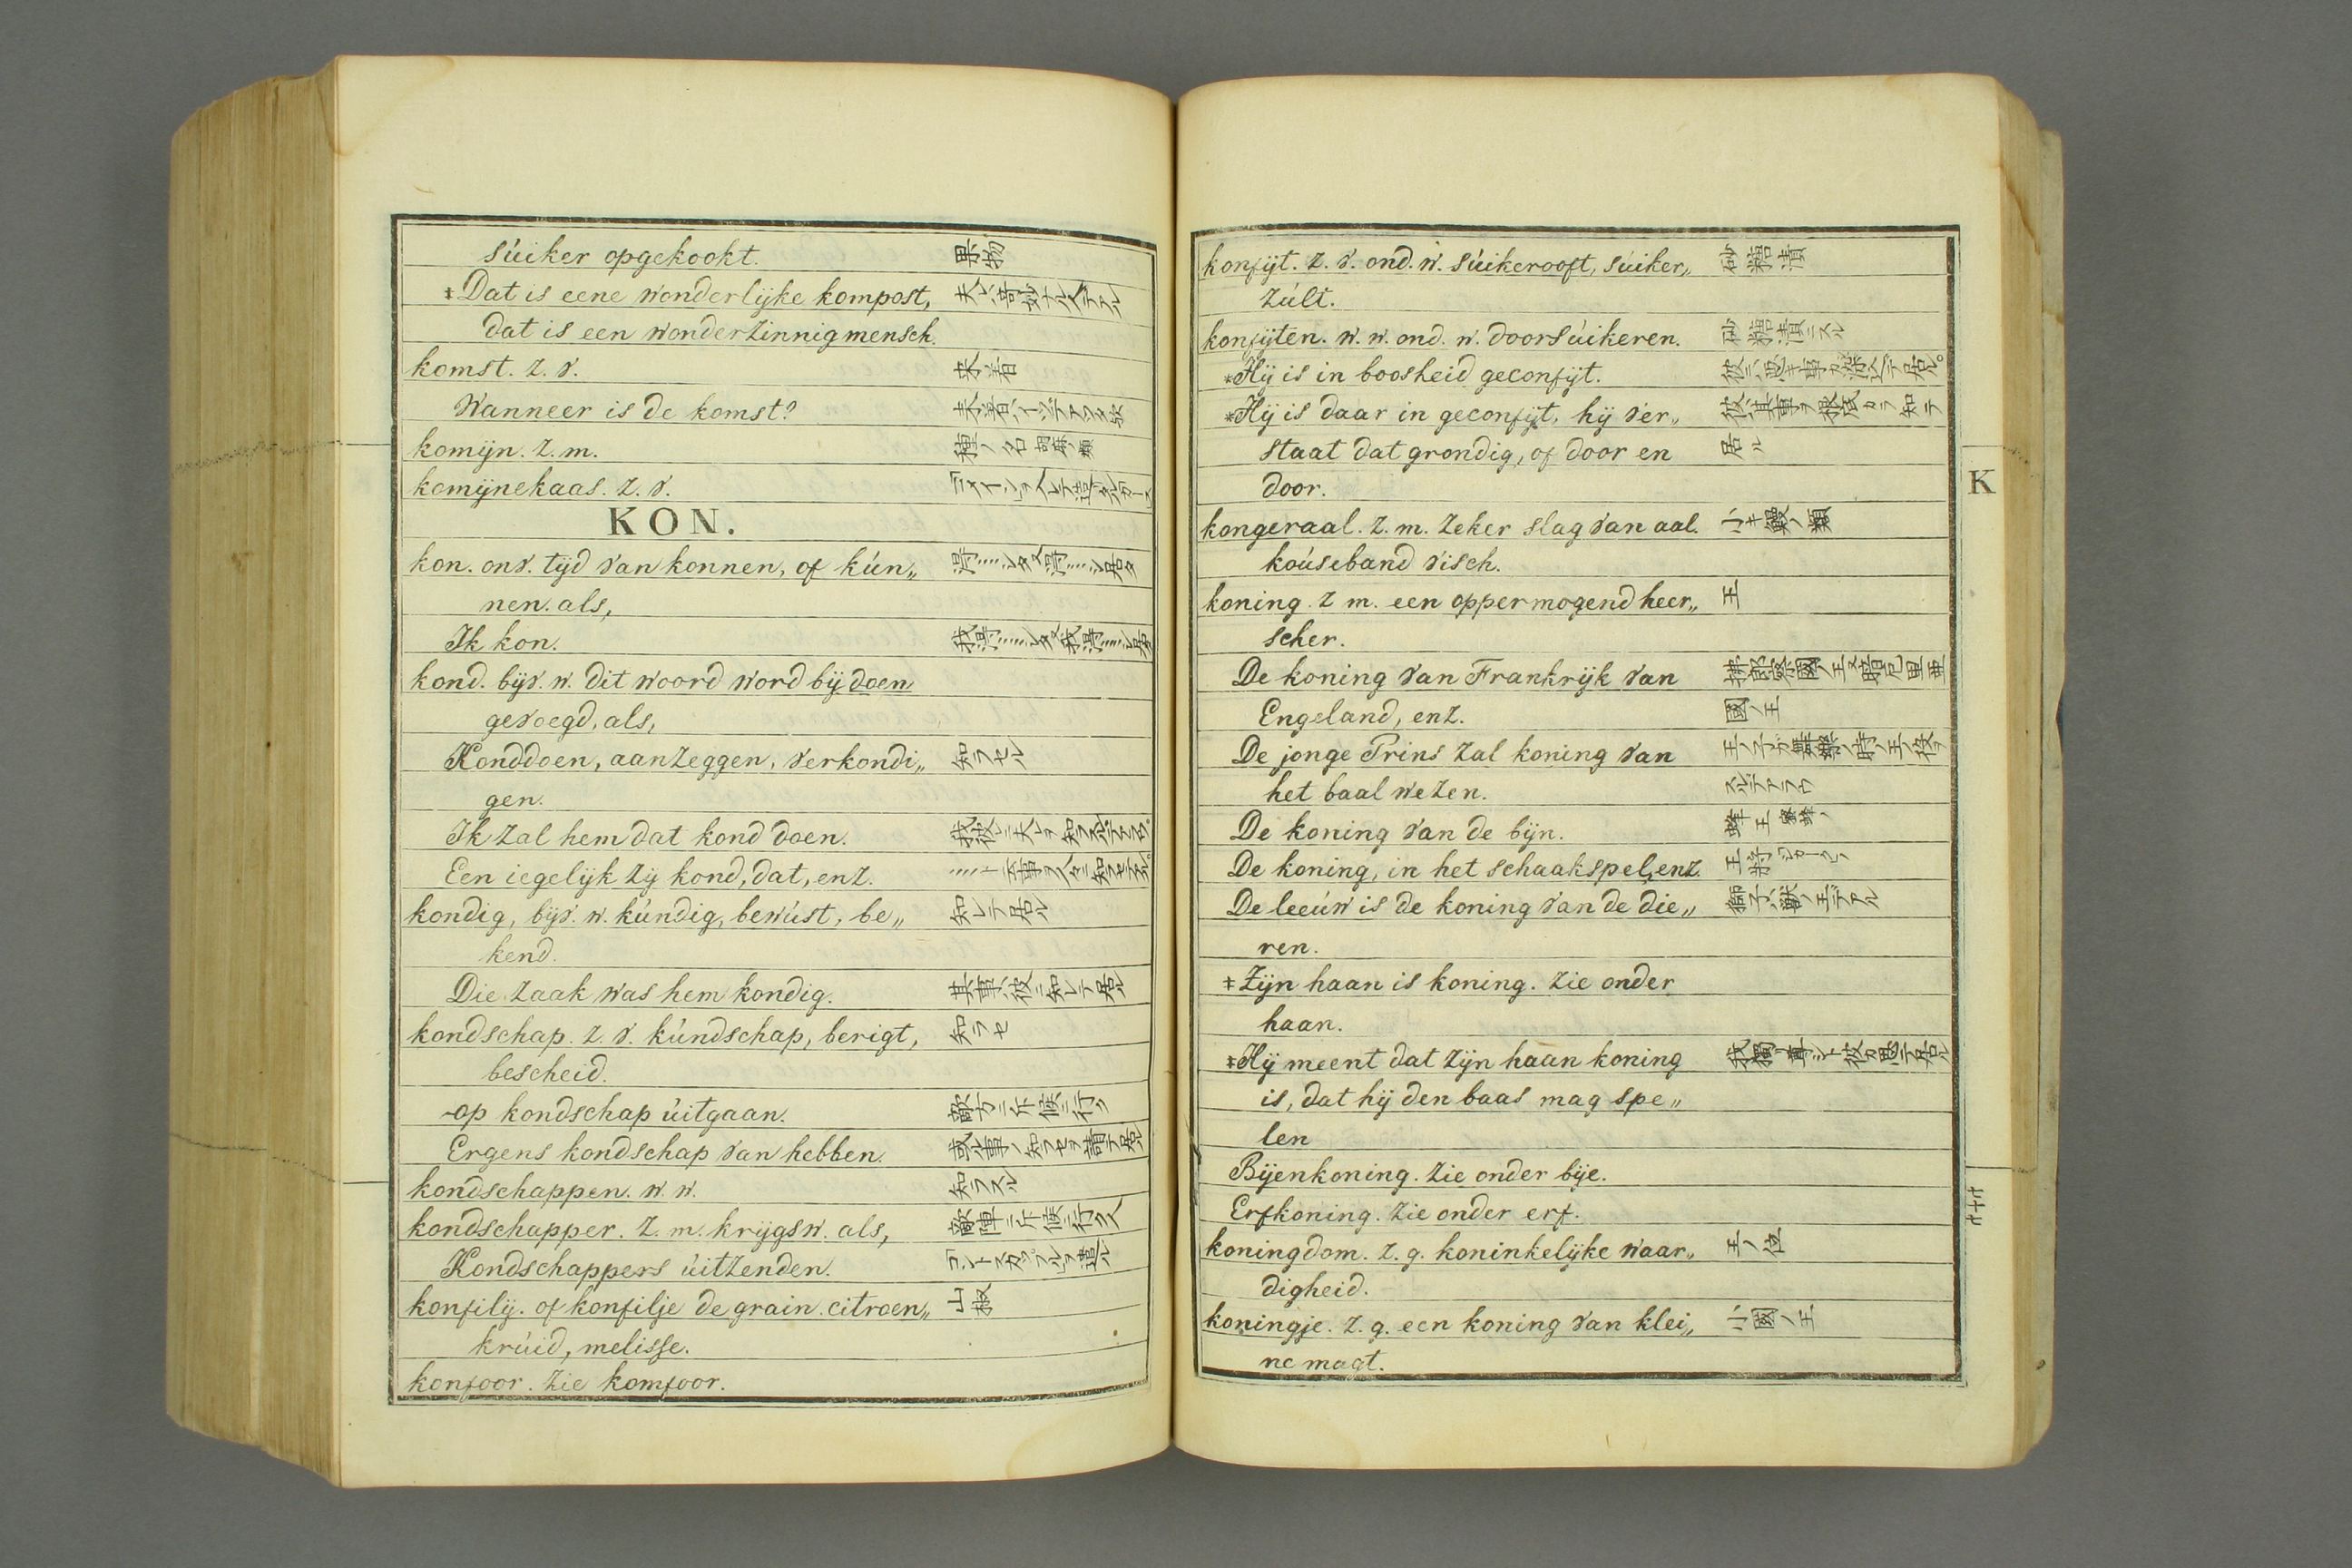 súiker opgekookt. 果物
‡Dat is eene wonderlijke kompost,
dat is een wonderzinnig mensch.
komst. z. v. 来着
Wanneer is de komst?
komijn. z. m.
komijnekaas. z. v.
KON.
kon. onv. tijd van konnen, of kún„
nen. als,
Ik kon.
kond. bijv. w. dit woord word bij doen
gevoegd, als,
Konddoen, aanzeggen, verkondi„ 知ラセル
gen.
Ik zal hem dat kond doen.
Een iegelijk zij kond, dat, enz.
kondig, bijv. w. kúndig, bewúst, be„ 知レテ居ル
kend.
Die zaak was hem kondig. 其事ハ彼ニ知レテ居ル
kondschap. z. v. kúndschap, berigt, 知ラセ
bescheid.
op kondschap úitgaan. 敵方ニ斥候ニ行ク
Ergens kondschap van hebben.
kondschappen. w. w. 知ラスル
kondschapper. z. m. krijgsw. als, 敵陣ニ斥候ニ行ク人
Kondschappers úitzenden.
konfilij. of konfilje de grain. citroen„ 山椒
krúid, melisse.
konfoor. zie komfoor.
konfijt. z. v. ond. w. súikerooft, súiker„ 砂糖漬
zúlt.
konfijten. w. w. ond. w. doorsúikeren. 砂糖漬ニスル
*Hij is in boosheid geconfijt.
*Hij is daar in geconfijt, hij ver„
staat dat grondig, of door en 居ル
door.
kongeraal. z. m. zeker slag van aal. 小キ鰻ノ類
koúseband visch.
koning. z m. een oppermogend heer„ 王
scher.
De koning van Frankrijk van
Engeland, enz. 國ノ王
De jonge Prins zal koning van
het baal wezen.
De koning van de bijn. 蜂王
De koning, in het schaakspel, enz. 王将
De leeúw is de koning van de die„ 獅子ハ獣ノ王デアル
ren.
‡Zijn haan is koning. zie onder
haan.
‡Hij meent dat zijn haan koning
is, dat hij den baas mag spe„
len
Bijenkoning. zie onder bije.
Erfkoning. zie onder erf.
koningdom. z. g. koninkelijke waar„ 王ノ位
digheid.
koningje. z. g. een koning van klei„ 小國ノ王
ne magt.
K